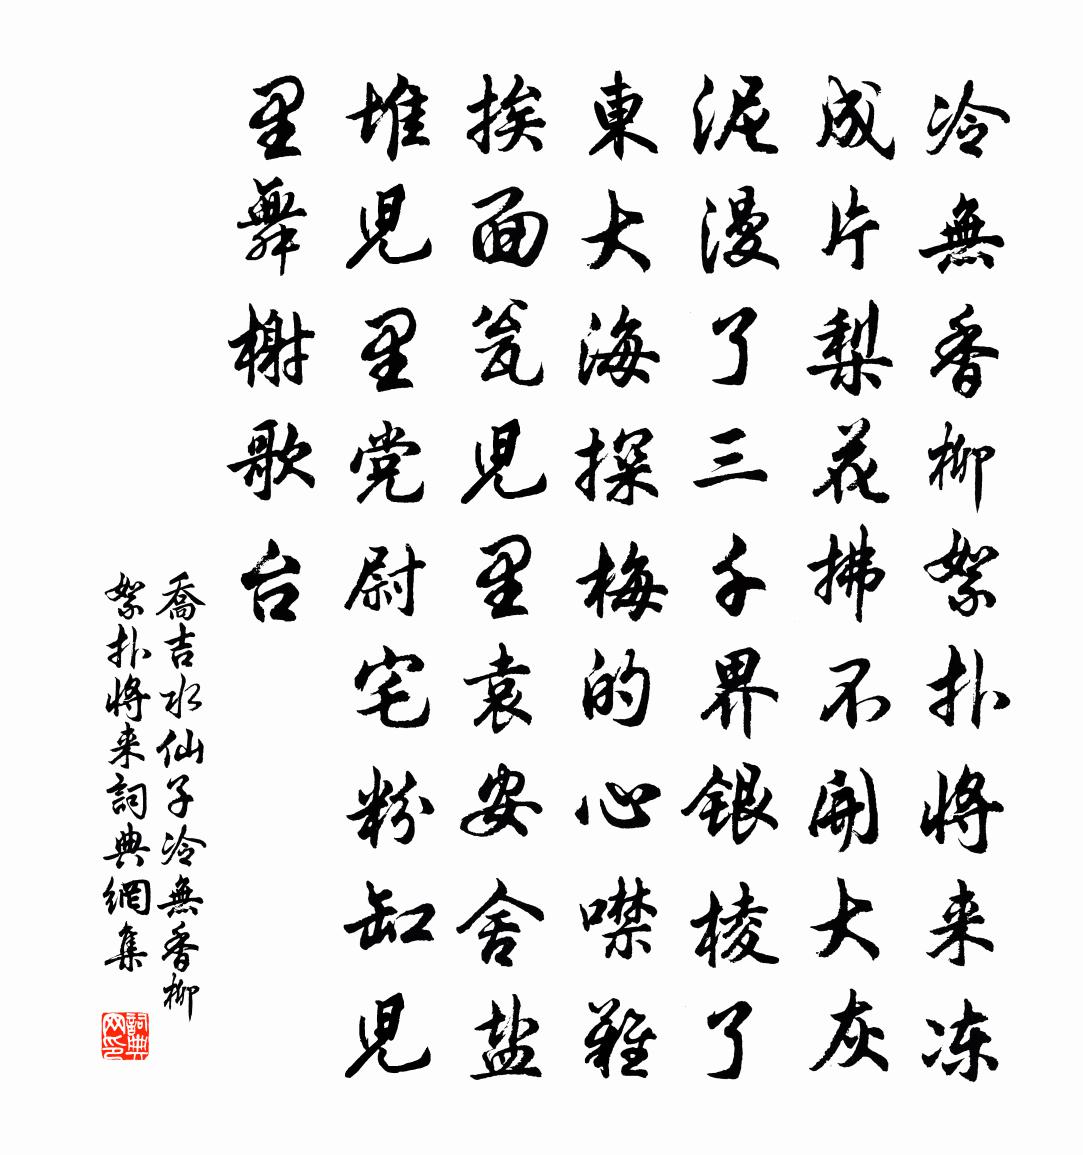 冷無香柳絮扑將来冻
成片梨花拂不開大灰
泥漫了三千界銀棱了
東大海探梅的心噤難
挨面瓮兒里袁安舍盐
堆兒里党尉宅粉缸兒
里舞榭歌台
喬吉水仙子冷無香柳
絮扑將来詞典網集
詞典
网印